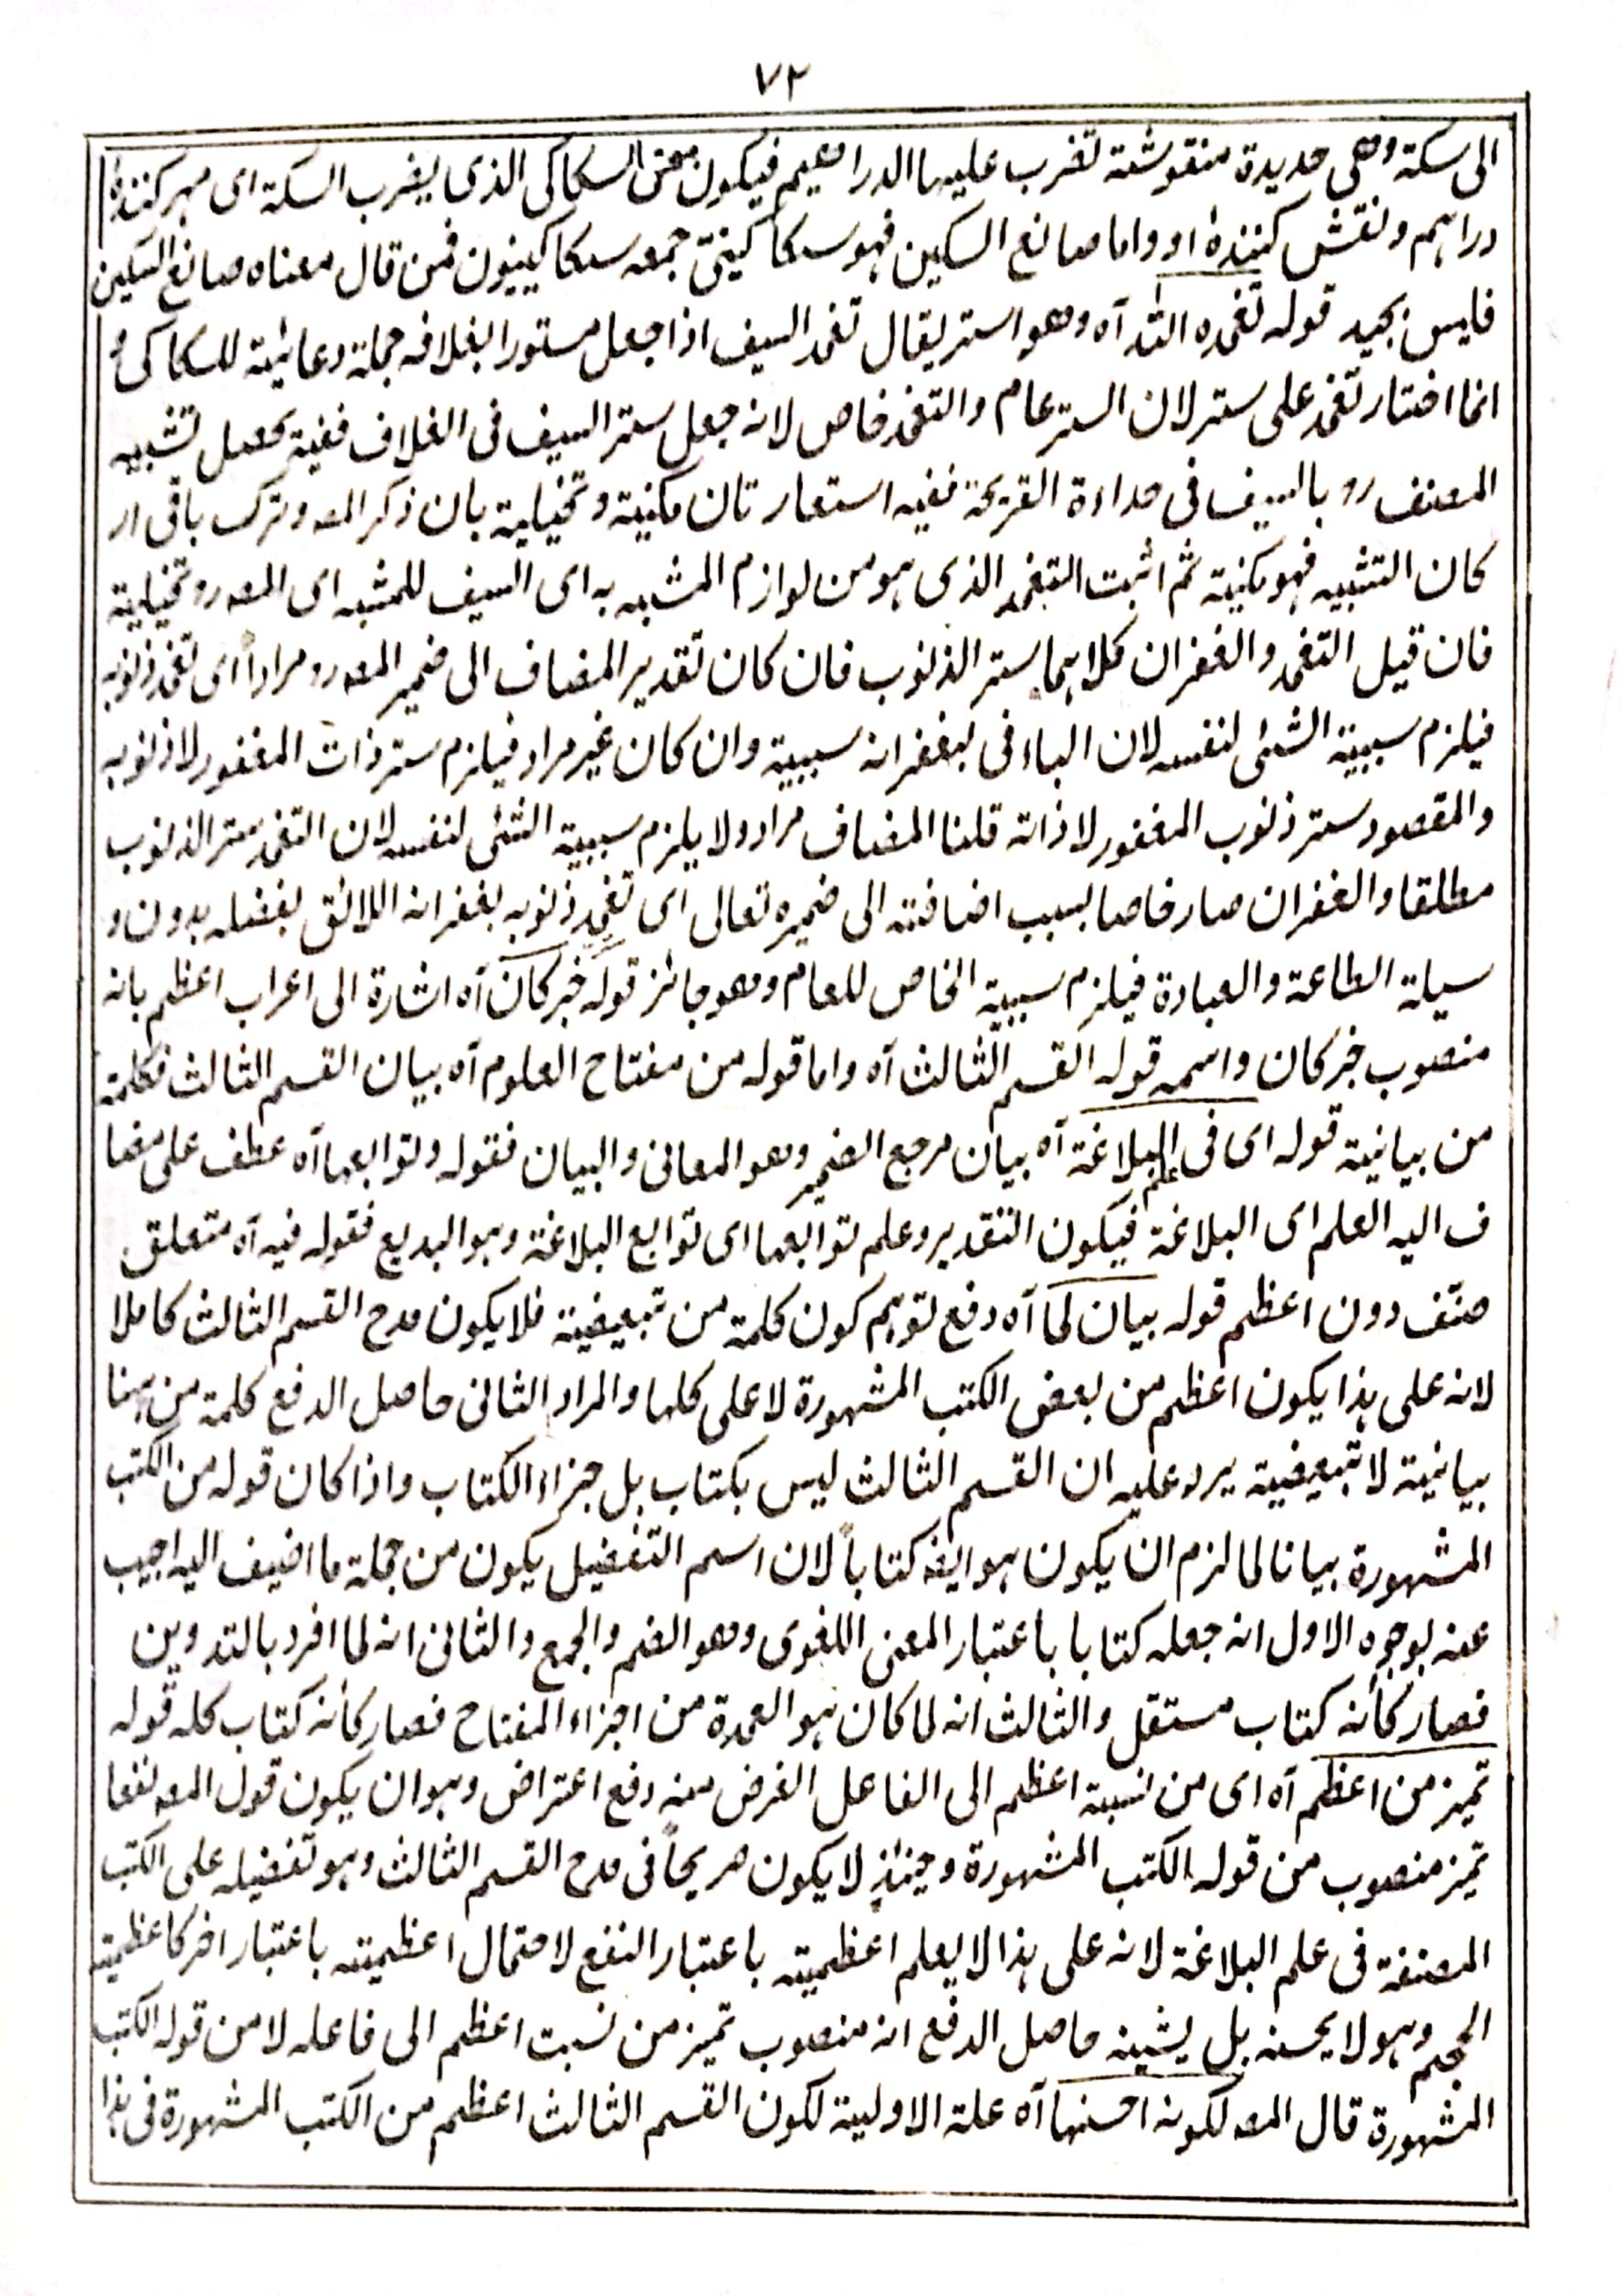 ٧٢
الى سكة وهى حديدة منقوشة تضرب عليها الدراهيم فيكون معنى السكاكى الذى يضرب السكة اى مهر كننده
دراہم ونقش كننده او واما صانع السكين فهو سكاكينىّ جمعه سكاكينيون فمن قال معناه صانع السكين
فليس بجيد قوله تغمده اللّٰه آه وهو استر يقال تغمد السيف اذا جعل مستورا بغلافه جملة دعائية للسكاكى و
انما اختار تغمد على ستر لان الستر عام والتغمد خاص لانه جعل ستر السيف فى الغلاف ففيه يحصل تشبيه
المصنف رو بالسيف فى حداءة القريحة ففيه استعارتان مكنية وتخيلية بان ذكر المصـ وترك باقى ار
كان التشبيه فهو مكنية ثم اثبت التغمد الذى ہو من لوازم المشبه به اى السيف للمشبه اى المصـ رو تخيلية
فان قيل التغمد والغفران كلاہما ستر الذنوب فان كان تقدير المضاف الى ضمير المصـ رو مراداً اى تغمد ذنوبه
فيلزم سببية الشئى لنفسه لان الباء فى بغفرانه سببية وان كان غير مراد فيلزم ستر ذات المغفور لا ذنوبه
والمقصود ستر ذنوب المغفور لا ذاته قلنا المضاف مراد ولا يلزم سببية الشئى لنفسه لان التغمد ستر الذنوب
مطلقا والغفران صار خاصا بسبب اضافته الى ضميره تعالى اى تغمد ذنوبه بغفرانه اللائق بفضله بدون و
سيلة الطاعة والعبادة فيلزم سببية الخاص للعام وهو جائز قوله خبر كان آه اشارة الى اعراب اعظم بانه
منصوب خبر كان واسمه قوله القسم الثالث آه واما قوله من مفتاح العلوم آه بيان القسم الثالث فكلمة
من بيانية قوله اى فى علم البلاغة آه بيان مرجع الضمير وهو المعانى والبيان فقوله وتوابعها آه عطف على مضا
ف اليه العلم اى البلاغة فيكون التقدير وعلم توابعها اى توابع البلاغة وہو البديع فقوله فيه آه متعلق
صنّف دون اعظم قوله بيان لما آه دفع توہم كون كلمة من تبعيضية فلا يكون مدح القسم الثالث كاملا
لانه على ہذا يكون اعظم من بعض الكتب المشہورة لا على كلها والمراد الثانى حاصل الدفع كلمة من ہہنا
بيانية لا تبعيضية يرد عليه ان القسم الثالث ليس بكتاب بل جزاء الكتاب واذا كان قوله من الكتب
المشہورة بيانا لما لزم ان يكون ہو ايضـ كتاباً لان اسم التفضيل يكون من جملة ما اضيف اليه اجيب
عنه بوجوه الاول انه جعله كتابا باعتبار المعنى اللغوى وهو الضم والجمع والثانى انه لما افرد بالتدوين
فصار كأنه كتاب مستقل والثالث انه لما كان ہو العمدة من اجزاء المفتاح فصار كأنه كتاب كله قوله
تميز من اعظم آه اى من نسبة اعظم الى الفاعل الغرض منه دفع اعتراض وہو ان يكون قول المصـ نفعا
تميز منصوب من قوله الكتب المشہورة وحينئذٍ لا يكون صريحاً فى مدح القسم الثالث وہو تفضيله على الكتب
المصنفة فى علم البلاغة لانه على ہذا لا يعلم اعظميته باعتبار النفع لاحتمال اعظميته باعتبار اخر كاعظمية
الحجم وہو لا يحسنه بل يشينه حاصل الدفع انه منصوب تميز من نسبت اعظم الى فاعله لا من قوله الكتب
المشہورة قال المصـ لكونه احسنها آه علة الاولية لكون القسم الثالث اعظم من الكتب المشہورة فى ہذا